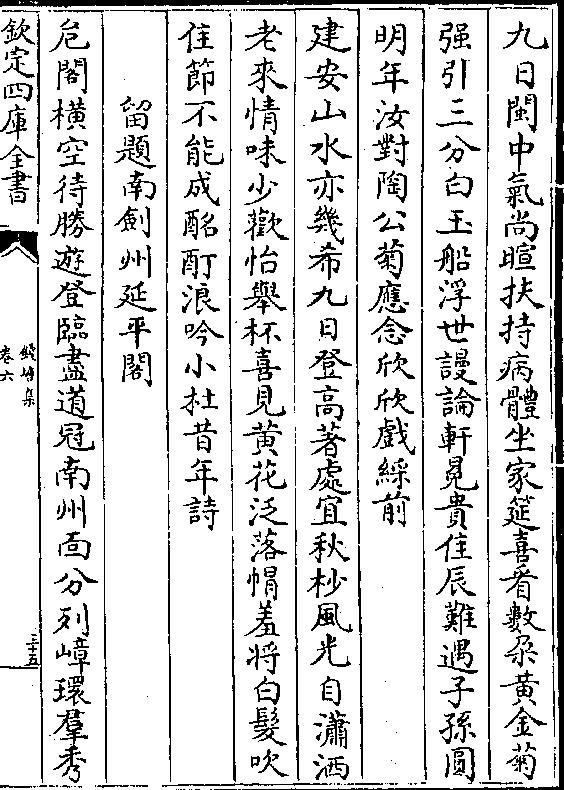 九日閩中氣尚暄扶持病體坐家筵喜看數朶黄金菊
强引三分白玉船浮世謾論軒冕貴佳辰難遇子孫圓
明年汝對陶公菊應念欣欣戲綵前
建安山水亦幾希九日登高著處宜秋杪風光自瀟洒
老來情味少歡怡舉杯喜見黄花泛落帽羞將白髮吹
佳節不能成酩酊浪吟小杜昔年詩
留題南劍州延平閣
危閣横空待勝遊登臨盡道冠南州面分列嶂環羣秀
欽定四庫全書
錢塘集
卷六
三十五